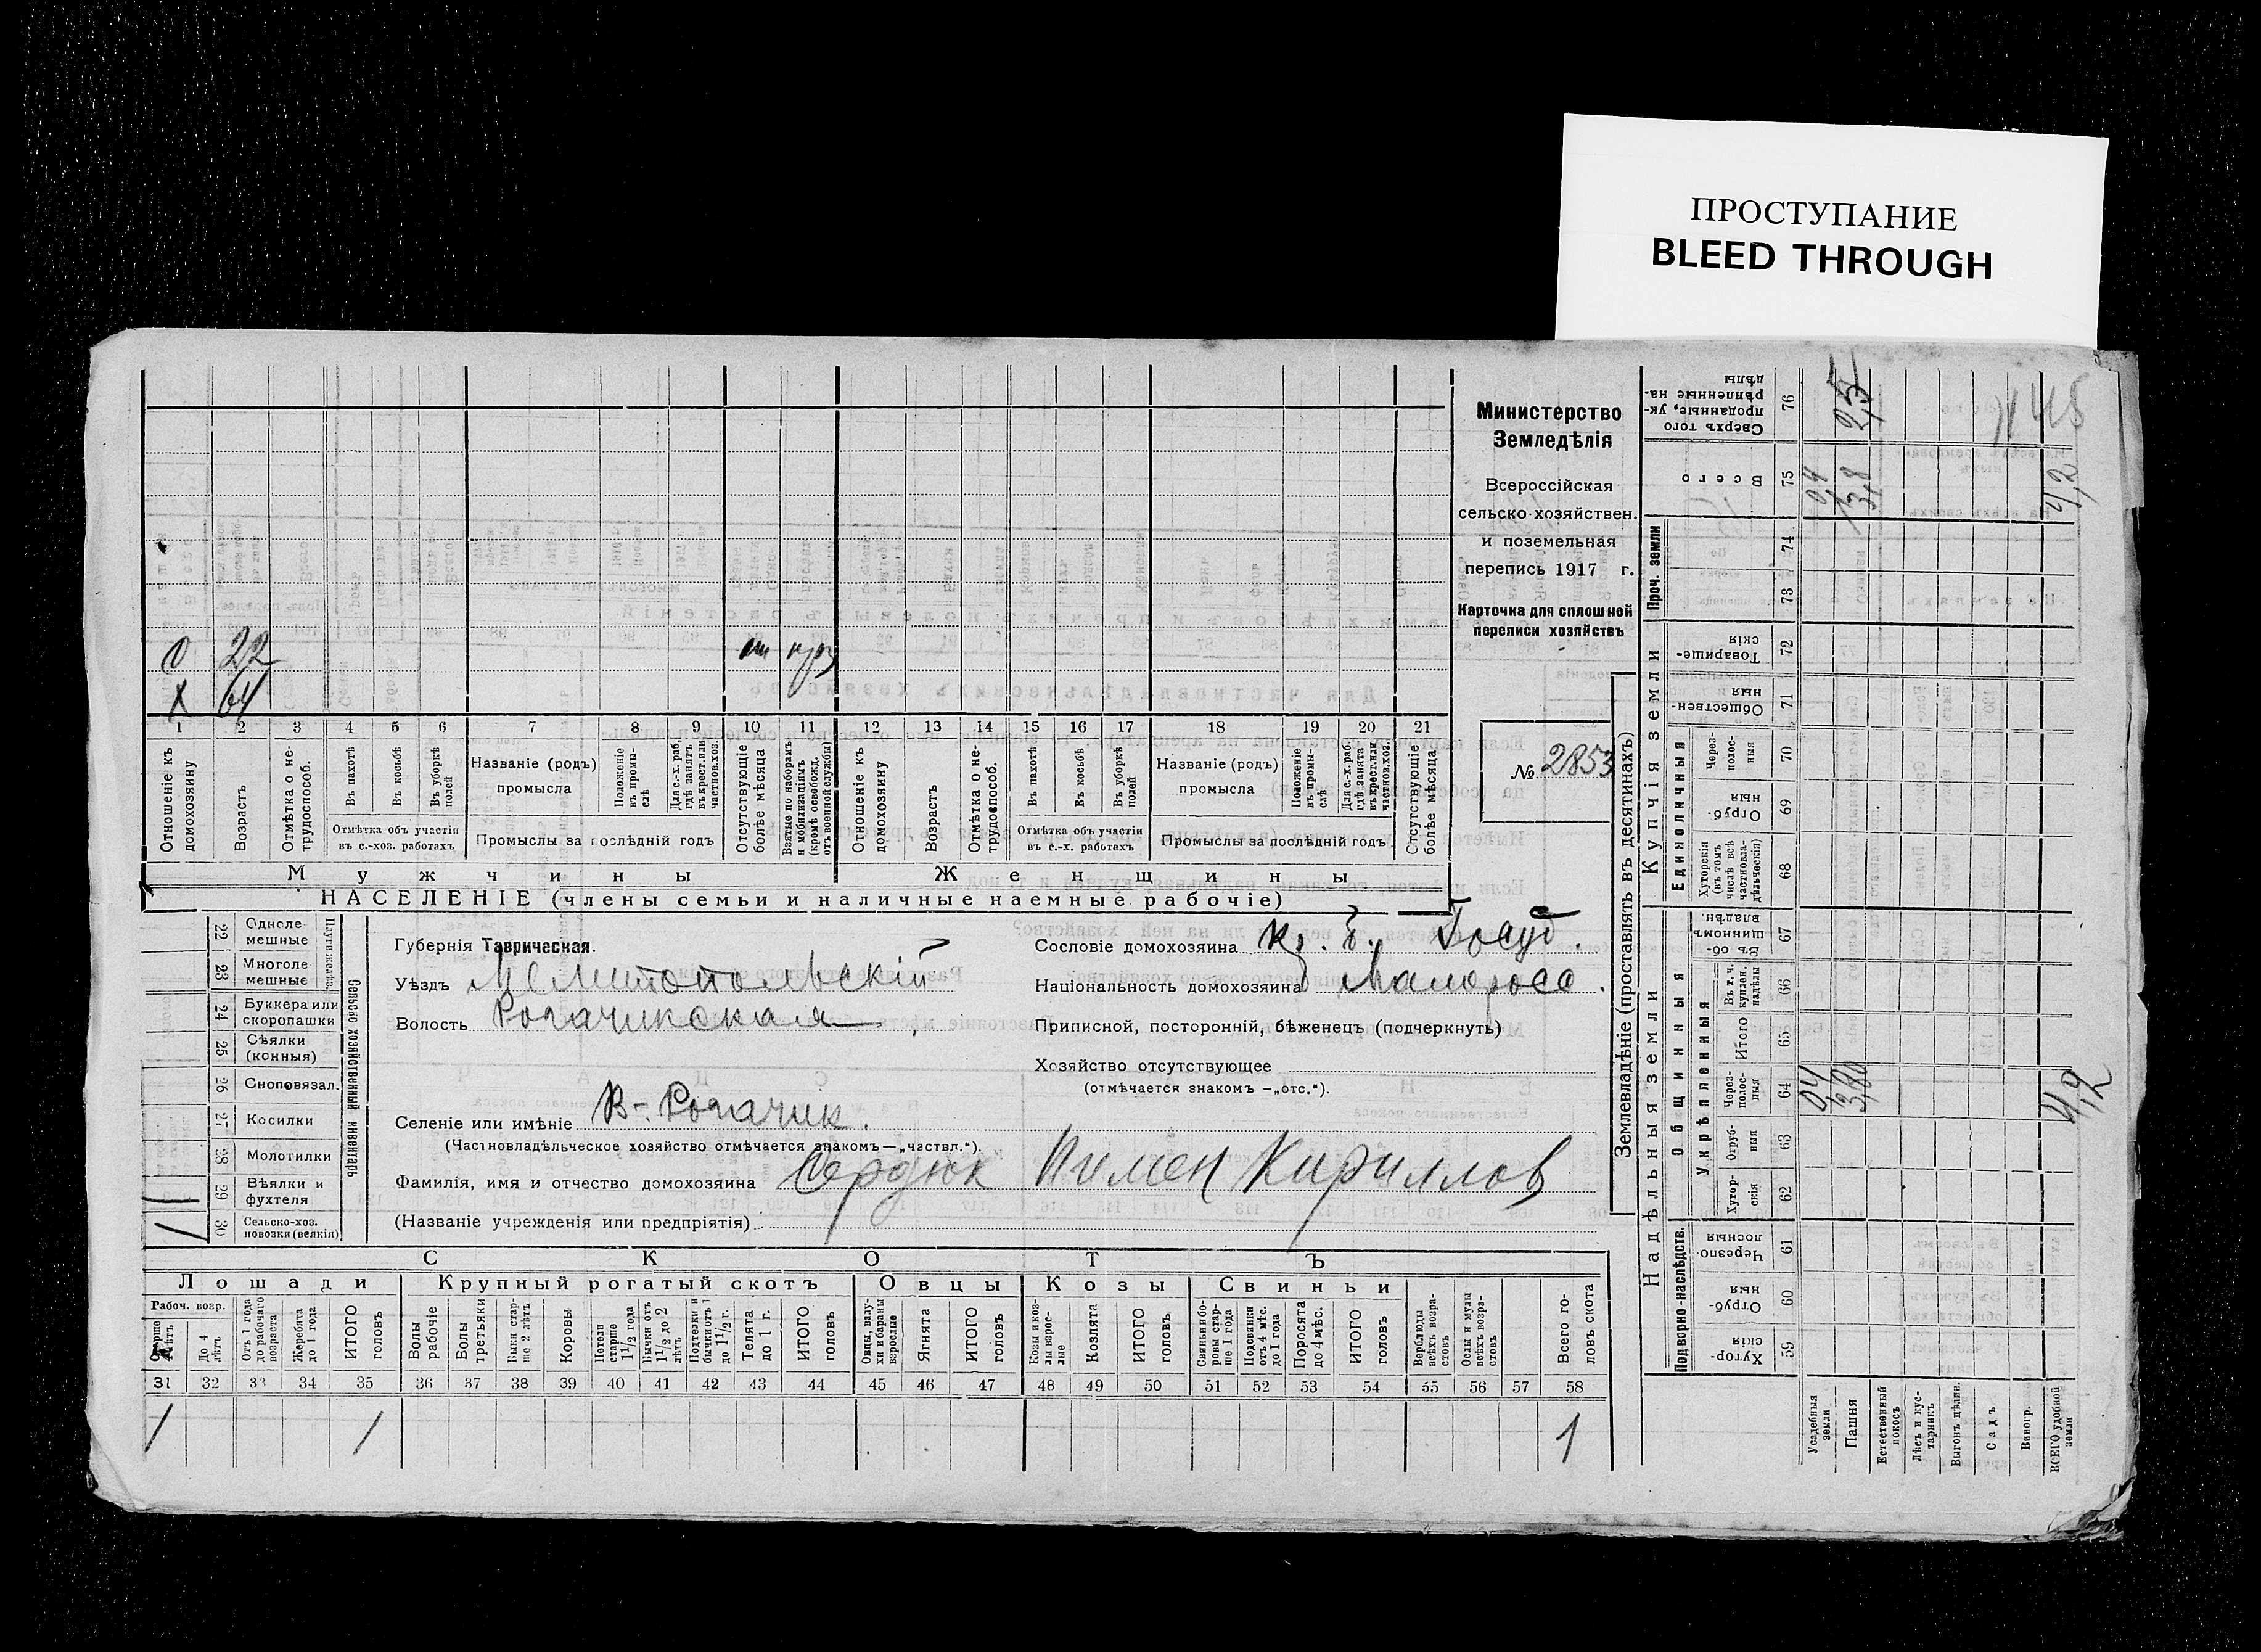 ПРОСТУПАНИЕ
BLEED THROUGH
Министерство
Земледѣлія
Всероссійская
сельско-хозяйствен.
и поземельная
перепись 1917 г.
Карточка для сплошной
переписи хозяйствъ
№ 2853
О 22
Х 64
1 2 3 4 5 6 7 8 9 10 11 12 13 14 15 16 17 18 19 20 21
Отношеніе къ домохозяину
Возрастъ
Отмѣтка о не-трудоспособ.
Въ пахотѣ
Въ косьбѣ
Въ уборкѣ полей
Отмѣтка объ участіи въ с.-хоз. работахъ
Названіе (родъ) промысла
Положеніе въ промы-слѣ
Для с.-х. раб. гдѣ занятъ въ крест. или частнов. хоз.
Промыслы за послѣдній годъ
Отсутствующіе болѣе мѣсяца
Взятые по наборамъ и мобилизаціямъ (кромѣ освобожд. отъ военной службы)
Отношеніе къ домохозяину
Возрастъ
Отмѣтка о не-трудоспособ.
Въ пахотѣ
Въ косьбѣ
Въ уборкѣ полей
Отмѣтка объ участіи въ с.-х. работахъ
Названіе (родъ) промысла
Положеніе въ промы-слѣ
Для с.-х. раб. гдѣ занята въ крест. или частнов. хоз.
Промыслы за послѣдній годъ
Отсутствующіе болѣе мѣсяца
Мужчины Женщины
НАСЕЛЕНІЕ (члены семьи и наличные наемные рабочіе)
Сельско хозяйственный инвентарь
22 Одноле-мешные
23 Многоле мешные
24 Буккера или скоропашки
25 Сѣялки (конныя)
26 Сноповязал.
27 Косилки
28 Молотилки
29 Вѣялки и фухтеля
30 Сельско-хоз. повозки (всякія)
Губернія Таврическая.
Уѣздъ Мелитопольскій
Волость Рогачикская
Селеніе или имѣніе В-Рогачик.
(Частновладѣльческое хозяйство отмѣчается знакомъ—„частвл.“).
Фамилія, имя и отчество домохозяина Сердюк Пимен Кириллов
(Названіе учрежденія или предпріятія)
Сословіе домохозяина Кр. б. Госуд.
Національность домохозяина Малоросс.
Приписной, посторонній, бѣженецъ (подчеркнуть)
Хозяйство отсутствующее
(отмѣчается знакомъ —„отс.“).
СКОТЪ
Лошади Крупный рогатый скотъ Овцы Козы Свиньи
Рабоч. возр.
Старше 4 лѣтъ
До 4 лѣтъ
Отъ 1 года до рабочаго возраста
Жеребята до 1 года
ИТОГО головъ
Волы рабочіе
Волы третьяки
Быки стар-ше 2 лѣтъ
Коровы
Нетели старше 1 1/2 года
Бычки отъ 1 1/2 до 2 лѣтъ
Подтелки и бычки отъ 1 до 1 1/2 г.
Телята до 1 г.
ИТОГО головъ
Овцы, валу-хи и бараны взрослые
Ягнята
ИТОГО головъ
Козы и коз-лы взрос-лые
Козлята
ИТОГО головъ
Свиньи и бо-ровы стар-ше 1 года
Подсвинки отъ 4 мѣс. до 1 года
Поросята до 4 мѣс.
ИТОГО головъ
Верблюды всѣхъ возра-стовъ
Ослы и мулы всѣхъ возра-стовъ
Всего го-ловъ скота
31 32 33 34 35 36 37 38 39 40 41 42 43 44 45 46 47 48 49 50 51 52 53 54 55 56 57 58
1 1 1
Землевладѣніе (проставлять въ десятинахъ)
Надѣльныя земли Купчія земли Проч. земли
Подворно-наслѣдств. Общинныя Единоличныя
Укрѣпленныя
Хутор-скія 59
Отруб-ныя 60
Черезпо-лосныя 61
Хутор-скія 62
Отруб-ныя 63
Через-полос-ныя 64
Итого 65
Въ т. ч. куплен. надѣлы 66
Въ об-щинномъ владѣн. 67
Хуторскія (въ томъ числѣ всѣ частновла-дѣльческія) 68
Отруб-ныя 69
Через-полос-ныя 70
Обществен-ныя 71
Товарище-скія 72
73 74
Всего 75
Сверхъ того проданные, ук-рѣпленные на-дѣлы 76
Усадебныя земли 0,4 0,4
Пашня 3,80 3,8
Естественный покосъ
Лѣсъ и кус-тарникъ
Выгонъ дѣлин.
Садъ
Виногр.
ВСЕГО удобной земли 4,2 4,2